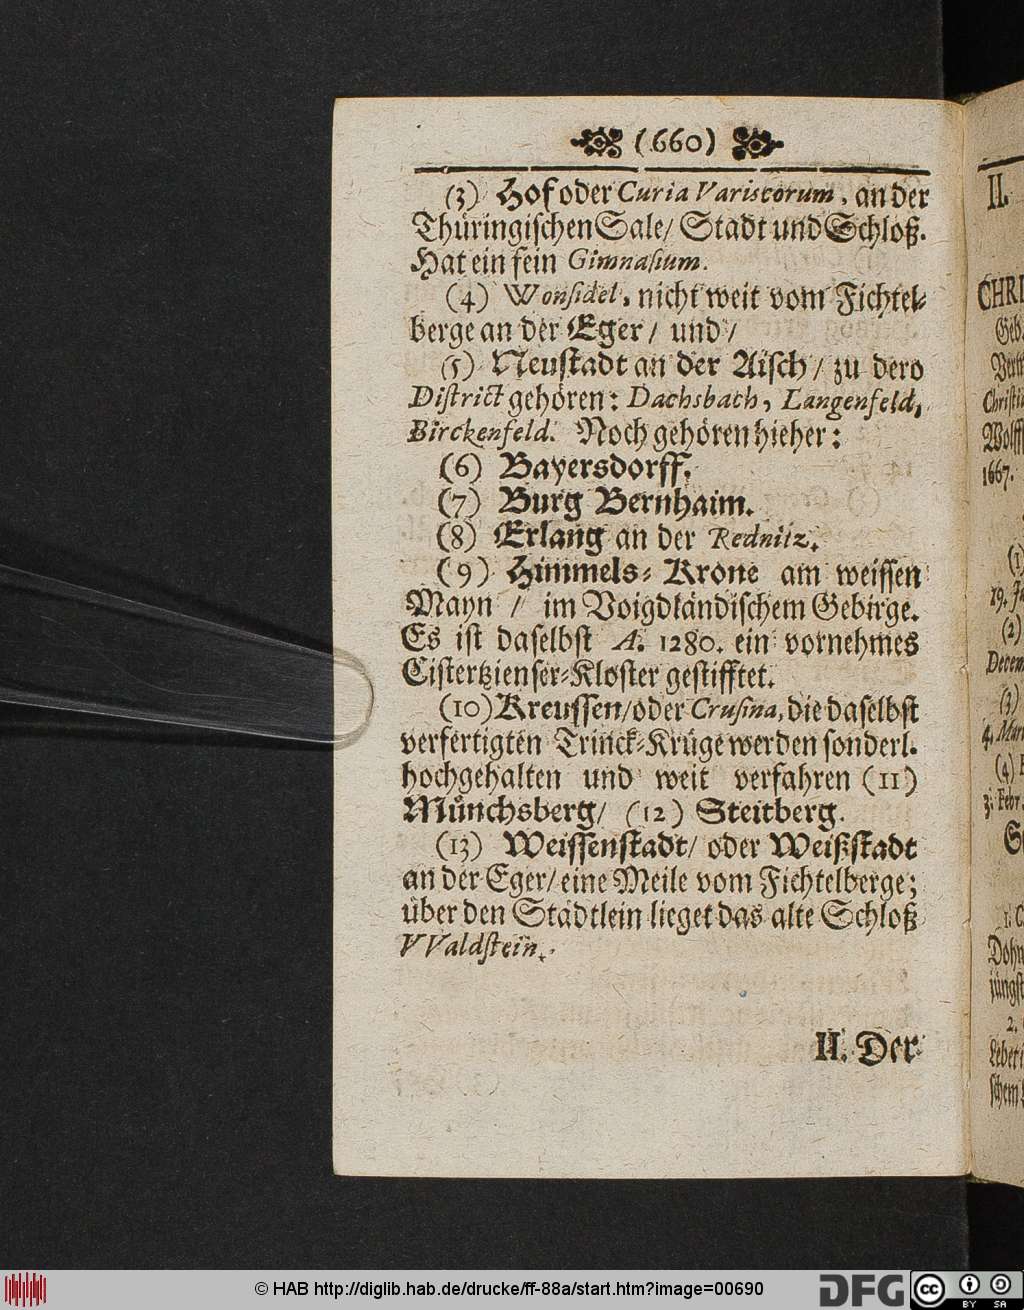 (660)
(3) Hof oder Curia Variscorum, an der
Thüringischen Sale/ Stadt und Schloß.
Hat ein fein Gimnasium.
(4) Wonsidel, nicht weit vom Fichtel-
berge an der Eger/ und/
(5) Neustadt an der Aisch/ zu dero
District gehören: Dachsbach, Langenfeld,
Birckenfeld. Noch gehören hieher:
(6) Bayersdorff,
(7) Burg Bernhaim.
(8) Erlang an der Rednitz.
(9) Himmels-Krone am weissen
Mayn / im Voigdländischem Gebirge.
Es ist daselbst A. 1280. ein vornehmes
Cistertzienser-Kloster gestifftet.
(10) Kreussen/oder Crusina, die daselbst
verfertigten Trinck-Krüge werden sonderl.
hochgehalten und weit verfahren (11)
Münchsberg/ (12) Steitberg.
(13) Weissenstadt/ oder Weißstadt
an der Eger/ eine Meile vom Fichtelberge;
über den Städtlein lieget das alte Schloß
VValdstein.
II. Der
II.
CHRI
Geb
Christi
Wolff
1667.
(1)
19. Ja
(2)
Decem
(3)
(4)
3. Febr
Dohn
jüngst
2.
schem
© HAB http://diglib.hab.de/drucke/ff-88a/start.htm?image=00690
DFG
cc BY SA